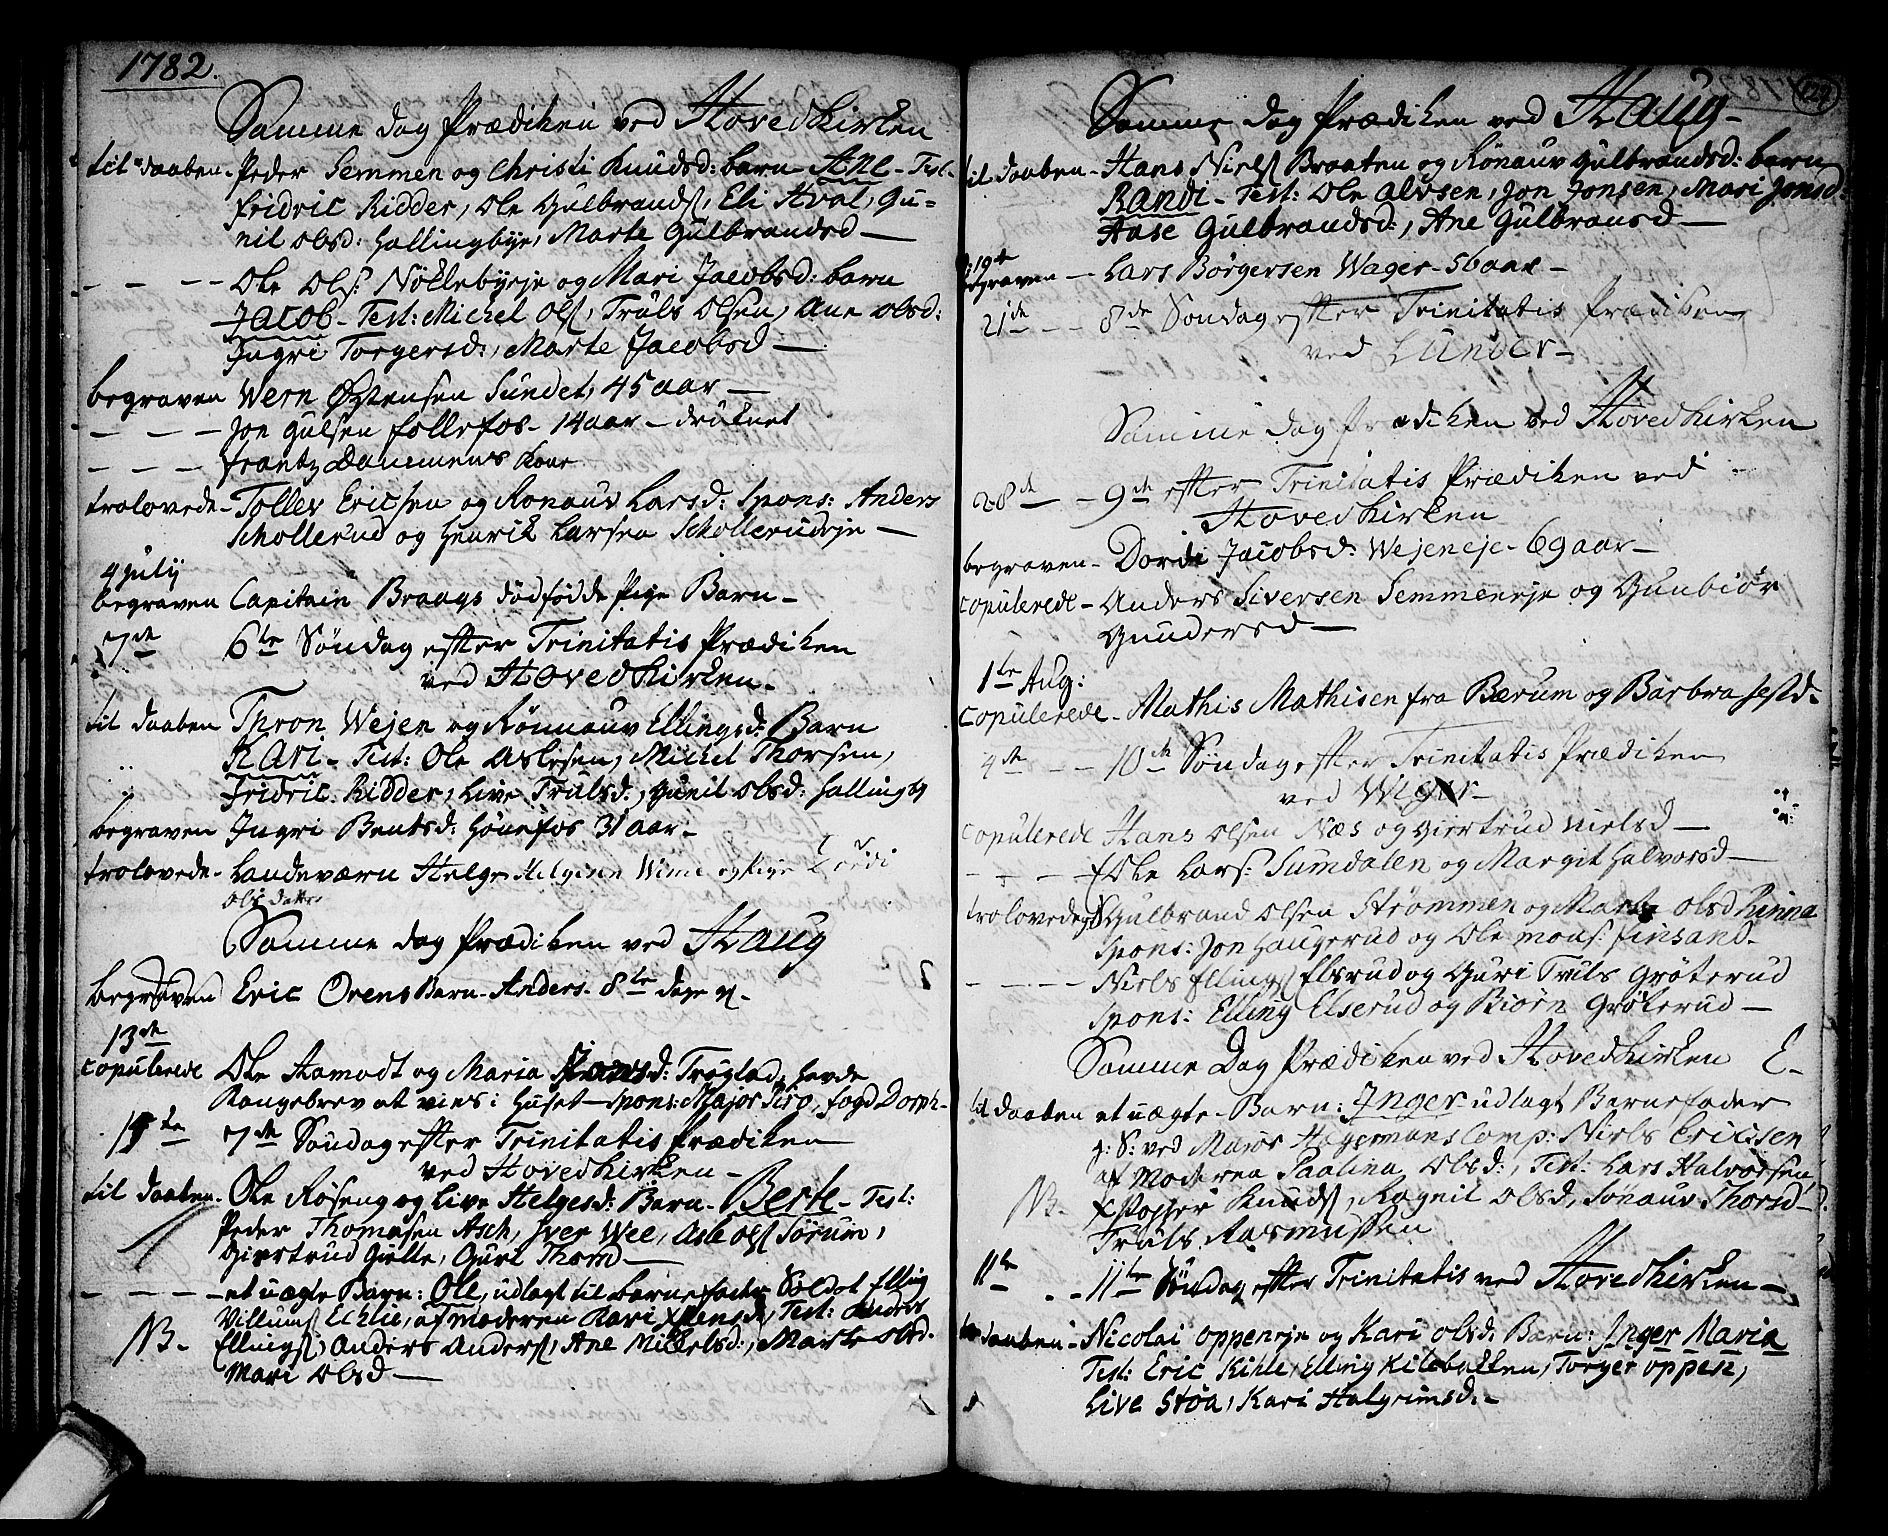 1782.
Samme dag Prædiken ved Hovedkirken
til daaben - Peder Semmen og Christi Knudsd: barn Ane - Test
fridric Ridder, Ole Gulbrands, Eli Hval, Gu=
nil olsd: Hallingbye, Marte Gulbrandsd —
— — — Ole Ols: Nöklebyeje og Mari Jacobsd: barn
Jacob - Test: Michel Ols, Truls Olsen, Ane olsd:
Ingri Torgersd:, Marte Jacobsd —
begraven Wern Østensen Sundet, 45 aar —
— — — Jon Gulsen follefos - 14 aar - druknet
— — — frantz Dammens Kone
trolovede - Tollev Ericsen og Ronauv Larsd: Spons: Anders
Schollerud og Henrik Larsen Schollerudeje —
4 july
begraven Capitain Braags dödfödde Pige Barn -
7de 6te Söndag efter Trinitatis Prædiken
ved Hovedkirken -
til daaben Thron Wejen og Rönnauv Ellingsd: Barn
Kari - Test: Ole Aslesen, Michel Thorsen,
Fridric Ridder, Live Trulsd:, Gunil olsd: Hallingby
begraven Ingri Bentsd: Hönefos 31 aar -
trolovede - Landeværn Helge Helgesen Wime og Pige
ols datter
Samme dag Prædiken ved Haug
begraven Eric Orens Barn - Anders - 8te dage
13de
copulerede Ole Aamodt og Maria Jansd: Tröglad, havde
Kongebrev at vies i Huset - Spons: Major fogd Dorph -
7de Söndag efter Trinitatis Prædiken
ved Hovedkirken -
til daaben - Ole Röseng og Live Helgesd: Barn - Berte - Test:
Peder Thomasen Asch, Iver Wee, Asle Ols Sörum,
Giertrud Gielle, Guri Thorsd —
— — — et uægte Barn: Ole, udlagt til barnefader Soldat Elling
Villums Echlie, af moderen Kari Test: Anders
NB - Ellings, Anders Anders, Ane Mickelsd:, Marte olsd.
Mari Olsd —
129
Samme dag Prædiken ved Haug -
til daaben - Hans Niels Braaten og Rönauv Gulbrandsd: barn
Randi - Test: Ole alvsen, Jon Jonsen, Mari Jonsd:
Aase Gulbrandsd:, Ane Gulbransd —
19de
begraven - Lars Börgersen Wager - 56 aar -
21de — — 8de Söndag efter Trinitatis Prædiken
ved Lunder -
Samme dag Prædiken ved Hovedkirken
28de — — 9de efter Trinitatis Prædiken ved
Hovedkirken
begraven - Dordi Jacobsd: Wejeneje - 69 aar —
copulerede - Anders Siversen Semmeneje og Gunbiör
Gundersd —
1te Aug:
copulerede - Mathis Mathisen fra Bærum og Barbra
4de — — 10de Söndag efter Trinitatis Prædiken
ved Wiger -
copulerede Hans olsen Næs og Giertrud Nielsd —
— — — Ole Lars: Sumdalen og Margit Halvorsd —
trolovede Gulbrand Olsen Strømmen og Marte olsd Rinna
Spons: Jon Haugerud og Ole mons: finsand -
— — — Niels Ellings Elsrud og Guri Truls Gröterud
Spons: Elling Elserud og Biörn Gröterud —
Samme Dag Prædiken ved Hovedkirken
til daaben et uægte - Barn: Inger - udlagt Barnefader
ved Major Hagermans Comp: Niels Ericsen
af Moderen Paalina Olsd:, Test: Lars Halvorsen,
NB - Knuds, Ragnil Olsd, Sönauv Thorsd -
Truls Rasmussen
11te — 11te Söndag efter Trinitatis ved Hovedkirken —
til daaben - Nicolai oppeneje og Kari olsd: Barn: Inger Maria
Test: Eric Kihle, Elling Kilebakken, Torger oppen,
Live Stöa, Kari Halgrimsd: -